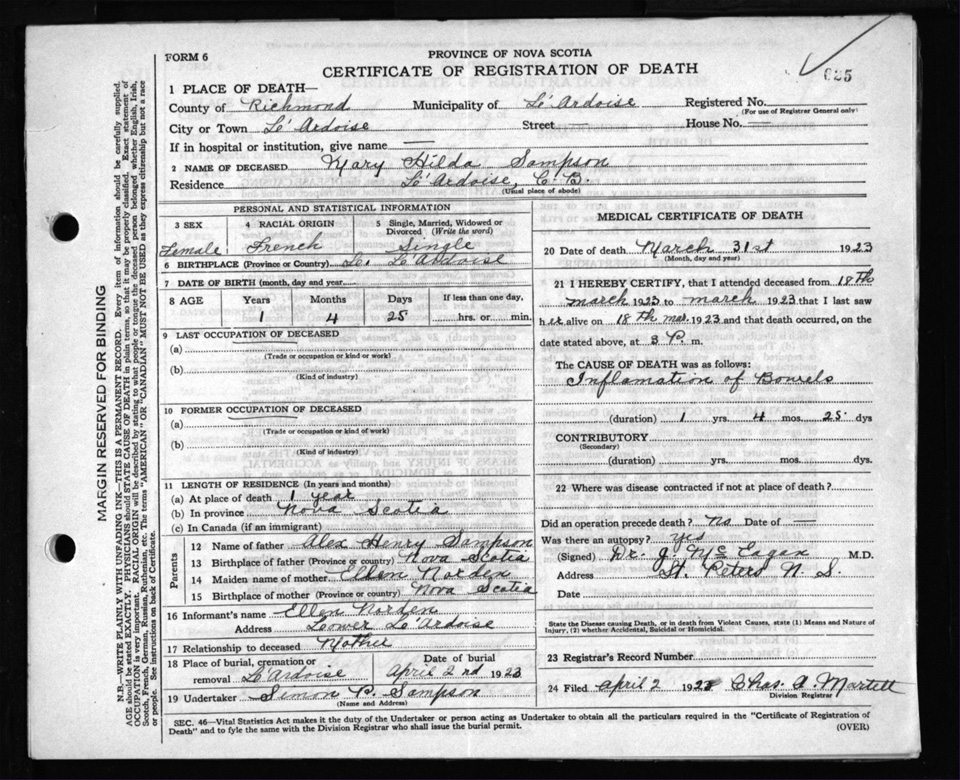 FORM 6
PROVINCE OF NOVA SCOTIA
CERTIFICATE OF REGISTRATION OF DEATH
025
1 PLACE OF DEATH—
County of Richmond Municipality of Le' Ardoise Registered No.
(For use of Registrar General only)
City or Town Le' Ardoise Street House No. —
If in hospital or institution, give name —
2 NAME OF DECEASED Mary Hilda Sampson
Residence Le' Ardoise, C. B.
(Usual place of abode)
PERSONAL AND STATISTICAL INFORMATION
3 SEX 4 RACIAL ORIGIN 5 Single, Married, Widowed or Divorced (Write the word)
Female French Single
6 BIRTHPLACE (Province or Country) L. Le' Ardoise
7 DATE OF BIRTH (month, day and year)
8 AGE Years Months Days If less than one day,
1 4 25 hrs. or min.
9 LAST OCCUPATION OF DECEASED
(a)
(Trade or occupation or kind or work)
(b)
(Kind of industry)
10 FORMER OCCUPATION OF DECEASED
(a)
(Trade or occupation or kind of work)
(b)
(Kind of industry)
11 LENGTH OF RESIDENCE (In years and months)
(a) At place of death 1 year
(b) In province Nova Scotia
(c) In Canada (if an immigrant)
Parents
12 Name of father Alex Henry Sampson
13 Birthplace of father (Province or country) Nova Scotia
14 Maiden name of mother Ellen Norden
15 Birthplace of mother (Province or country) Nova Scotia
16 Informant's name Ellen Norden
Address Lower Le' Ardoise
17 Relationship to deceased Mother
18 Place of burial, cremation or removal Le' Ardoise Date of burial April 2nd 1923
19 Undertaker Simon P. Sampson
(Name and Address)
MEDICAL CERTIFICATE OF DEATH
20 Date of death March 31st 1923
(Month, day and year)
21 I HEREBY CERTIFY, that I attended deceased from 18th
march 1923 to march 1923 that I last saw
her alive on 18 th mar. 1923 and that death occurred, on the
date stated above, at 3 P. m.
The CAUSE OF DEATH was as follows:
Inflamation of Bowels
(duration) 1 yrs. 4 mos. 25 dys
CONTRIBUTORY
(Secondary)
(duration) yrs. mos. dys.
22 Where was disease contracted if not at place of death?
Did an operation precede death? No Date of —
Was there an autopsy? Yes
(Signed) Dr. J. Mc M.D.
Address St. Peters N. S.
Date
State the Disease causing Death, or in death from Violent Causes, state (1) Means and Nature of
Injury, (2) whether Accidental, Suicidal or Homicidal.
23 Registrar's Record Number
24 Filed April 2 1923 Chas. A Martell
Division Registrar
SEC. 46—Vital Statistics Act makes it the duty of the Undertaker or person acting as Undertaker to obtain all the particulars required in the "Certificate of Registration of
Death" and to fyle the same with the Division Registrar who shall issue the burial permit.
(OVER)
MARGIN RESERVED FOR BINDING
N.B.—WRITE PLAINLY WITH UNFADING INK—THIS IS A PERMANENT RECORD. Every item of information should be carefully supplied.
AGE should be stated EXACTLY. PHYSICIANS should STATE CAUSE OF DEATH in plain terms, so that it may be properly classified. Exact statement of
OCCUPATION is very important. RACIAL ORIGIN will be described by stating to what people or tongue the deceased person belonged whether English, Irish,
Scotch, French, German, Russian, Ruthenian, etc. The terms "AMERICAN" OR "CANADIAN" MUST NOT BE USED as they express citizenship but not a race
or people. See instructions on back of Certificate.